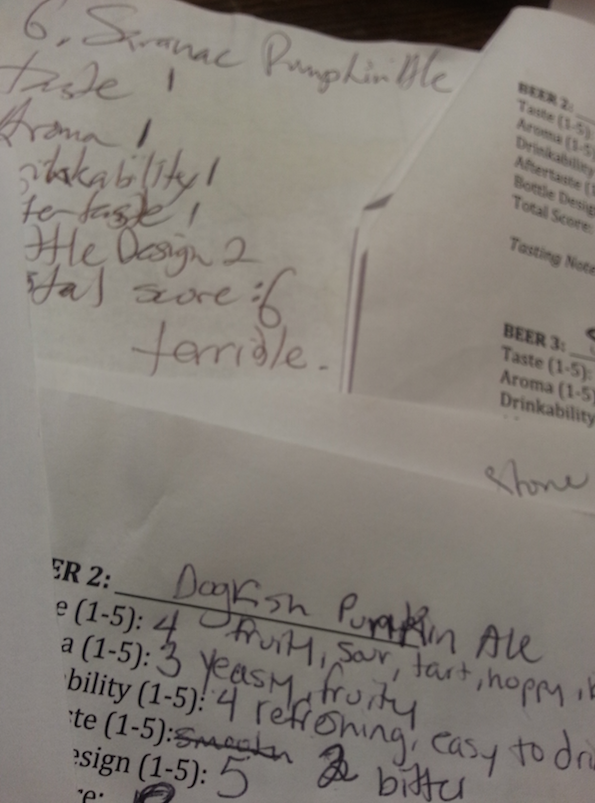 6. Saranac Pumpkin Ale
taste 1
Aroma 1
inkability 1
tertaste 1
ttle Design 2
otal score: 6
terrible.
BEER 2:
Taste (1-5):
Aroma (1-5)
Drinkability
Aftertaste (
Bottle Desig
Total Score:
Tasting Note
BEER 3:
Taste (1-5):
Aroma (1-5)
Drinkability
Stone
ER 2: Dogfish Pumpkin Ale
e (1-5): 4 fruity, sour, tart, hoppy,
a (1-5): 3 yeasty, fruity
bility (1-5): 4 refreshing, easy to dri
ste (1-5): smooth 2 bitter
esign (1-5): 5
re: